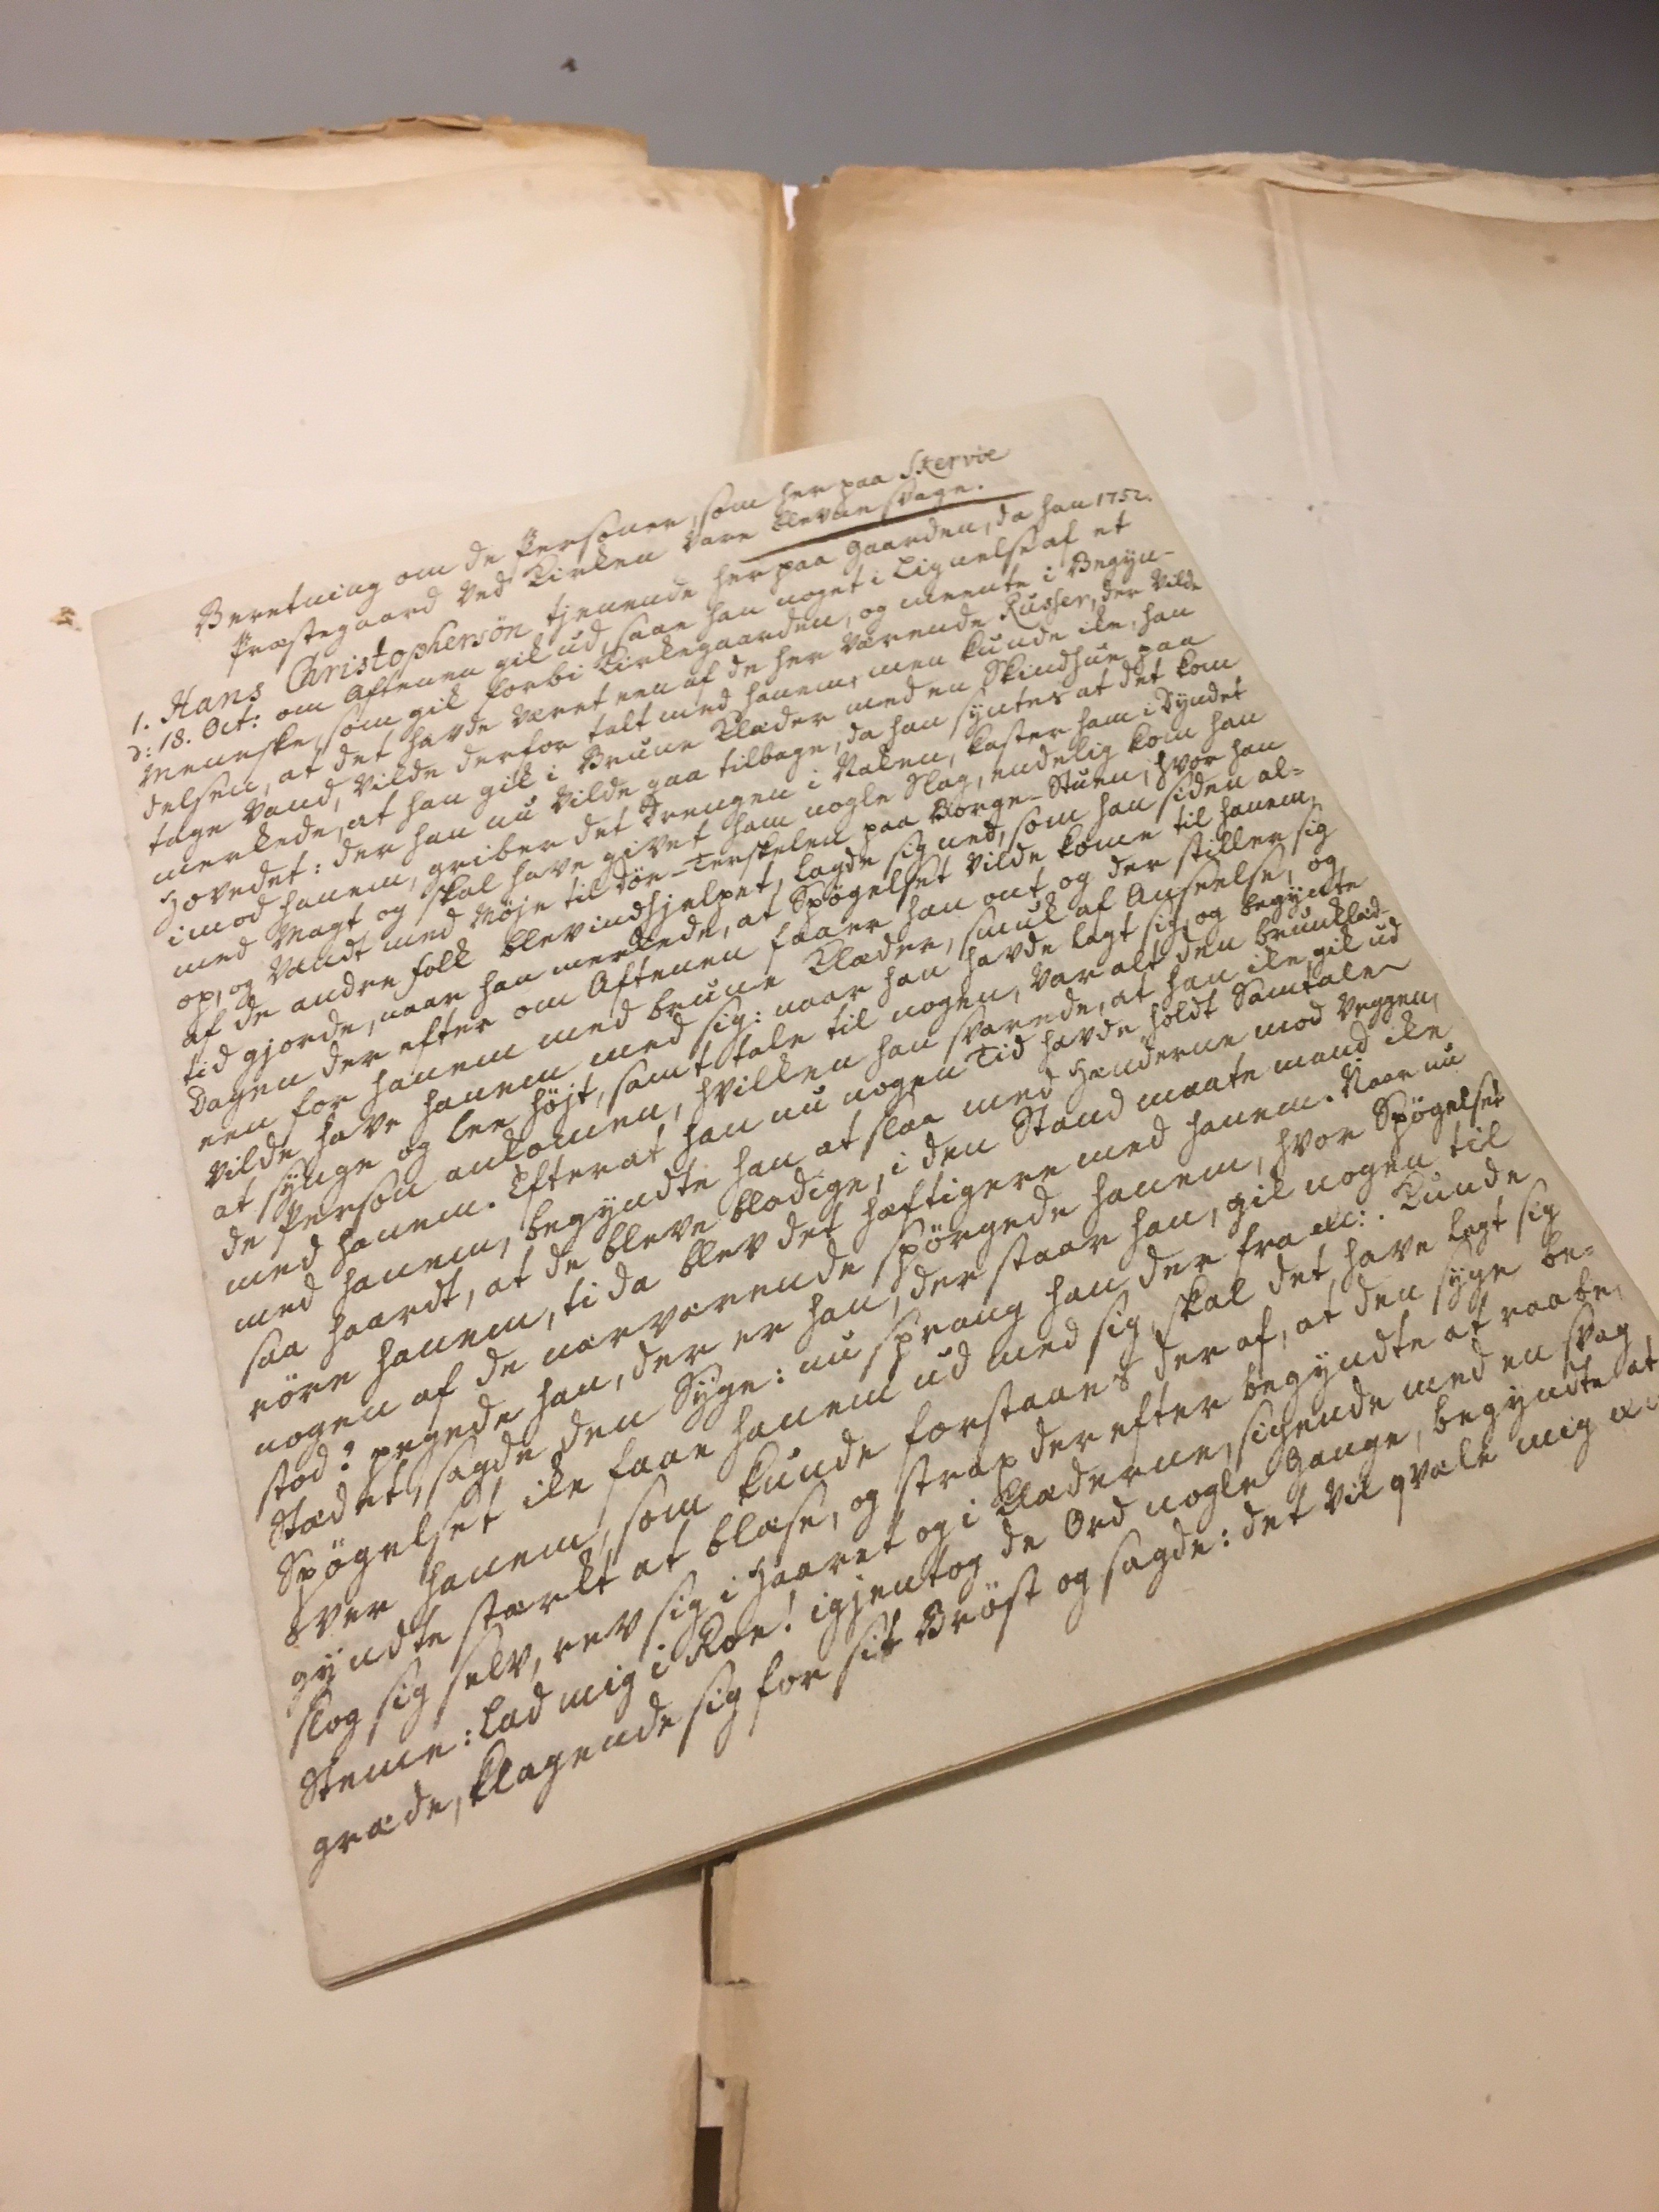 Beretning om de Personer, som her paa Skervöe
Præstegaard ved Kirken bare blevne svage.
1. Hans Christophersön tjenende her paa Gaarden, da han 1752.
d: 18. Oct: om Aftenen gik ud, saae han noget i Lignelse af et
Menneske, som gik forbi Kirkegaarden, og meente i Begyn-
delsen, at det havde været een af de her værende Russer, der vilde
tage Vand, vilde derfor talt med hanem, men kunde ike, han
merkede, at han gik i Brune Klæder med en Skindhue paa
Hovedet: der han nu vilde gaa tilbage, da han syntes at det kom
imod hanem, griber det Drengen i Naken, kaster ham i Dyndet
med Magt og skal have givet ham nogle Slag, endelig kom han
op, og vandt med Möje til Dör-Terskelen paa Borge-Stuen, hvor han
af de andre folk blev indhjelpet, lagde sig ned, som han siden al-
tid gjorde, naar han merkede, at Spögelset vilde kome til hanem.
Dagen der efter om Aftenen faaer han ont og der stiller sig
een for hanem med brune Klæder, smuk af Anseelse, og
vilde have hanem med sig: naar han havde lagt sig, og begynte
at synge og lee höjt, samt tale til nogen, var alt den brunklæd-
de Person ankomen, hvilken han svarede, at han ike gik ud
med hanem. Efter at han nu nogen Tid havde holdt Samtale
med hanem, begyndte han at slaa med Hænderne mod Veggen,
saa haardt, at de bleve blodige, i den Stand maate mand ike
röre hanem, ti da blev det hæftigere med hanem. Naar nu
nogen af de nærværende spörgede hanem, hvor Spögelset
stod? pegede han, der er han, der staar han, gik nogen til
Stædet, sagde den Syge: nu sprang han der fra etc:. Kunde
Spögelset ike faae hanem ud med sig, skal det have lagt sig
over hanem, som kunde forstaaes der af, at den syge be-
gyndte stærkt at blæse, og strax der efter begyndte at raabe,
slog sig selv, rev sig i Haaret og i Klæderne, sigende med en svag
Steme: Lad mig i Roe! igjentog de Ord nogle Gange, begyndte at
græde, klagende sig for sit Bröst og sagde: det vil qvæle mig